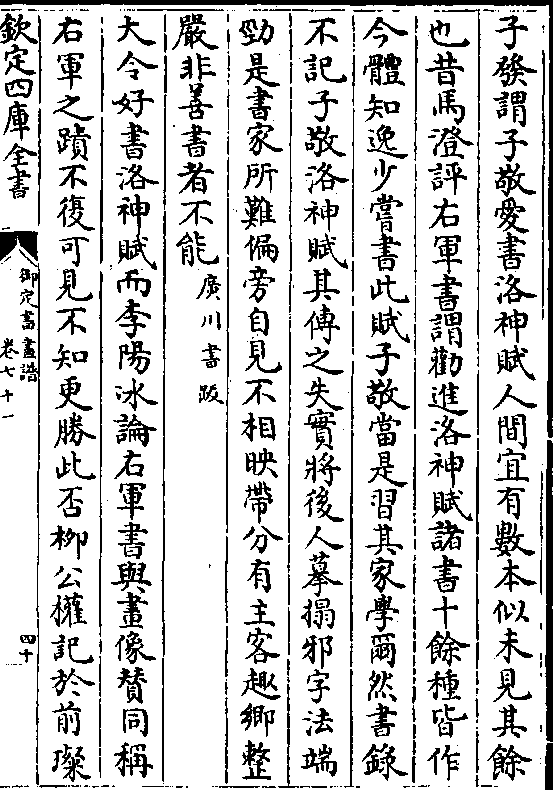 子發謂子敬愛書洛神賦人間宜有數本似未見其餘
也昔馬澄評右軍書謂勸進洛神賦諸書十餘種皆作
今體知逸少嘗書此賦子敬當是習其家學爾然書錄
不記子敬洛神賦其傳之失實將後人摹搨邪字法端
勁是書家所難偏旁自見不相映帶分有主客趣鄉整
嚴非善書者不能廣川書跋
大令好書洛神賦而李陽冰論右軍書與畫像賛同稱
右軍之蹟不復可見不知更勝此否柳公權記於前璨
欽定四庫全書
御定書畫譜
卷七十一
四十